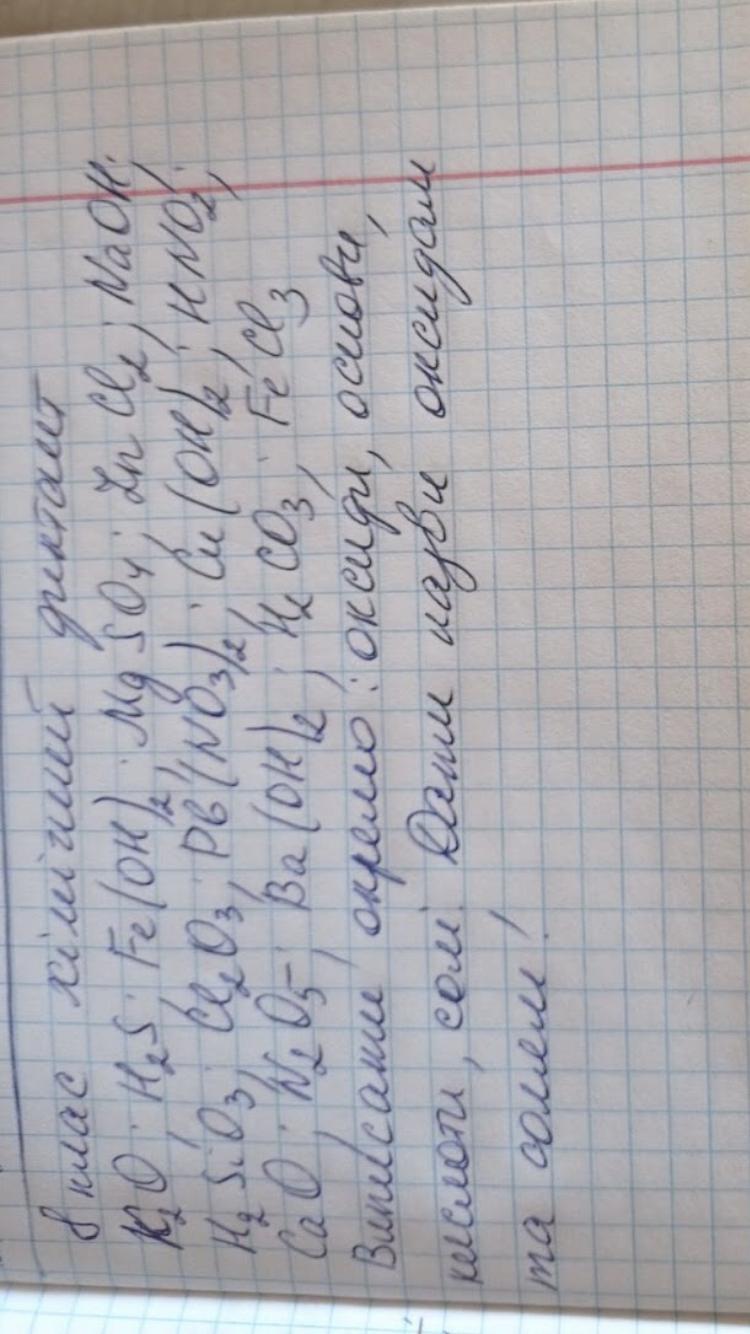 8 клас хімічний диктант
K₂O; H₂S; Fe(OH)₂; MgSO₄; ZnCl₂; NaOH;
H₂SiO₃; Cl₂O₃; Pb(NO₃)₂; Cu(OH)₂; HNO₂;
CaO; N₂O₅; Ba(OH)₂; H₂CO₃; FeCl₃
Виписати окремо: оксиди, основи,
кислоти, солі. Дати назви оксидам
та солям!